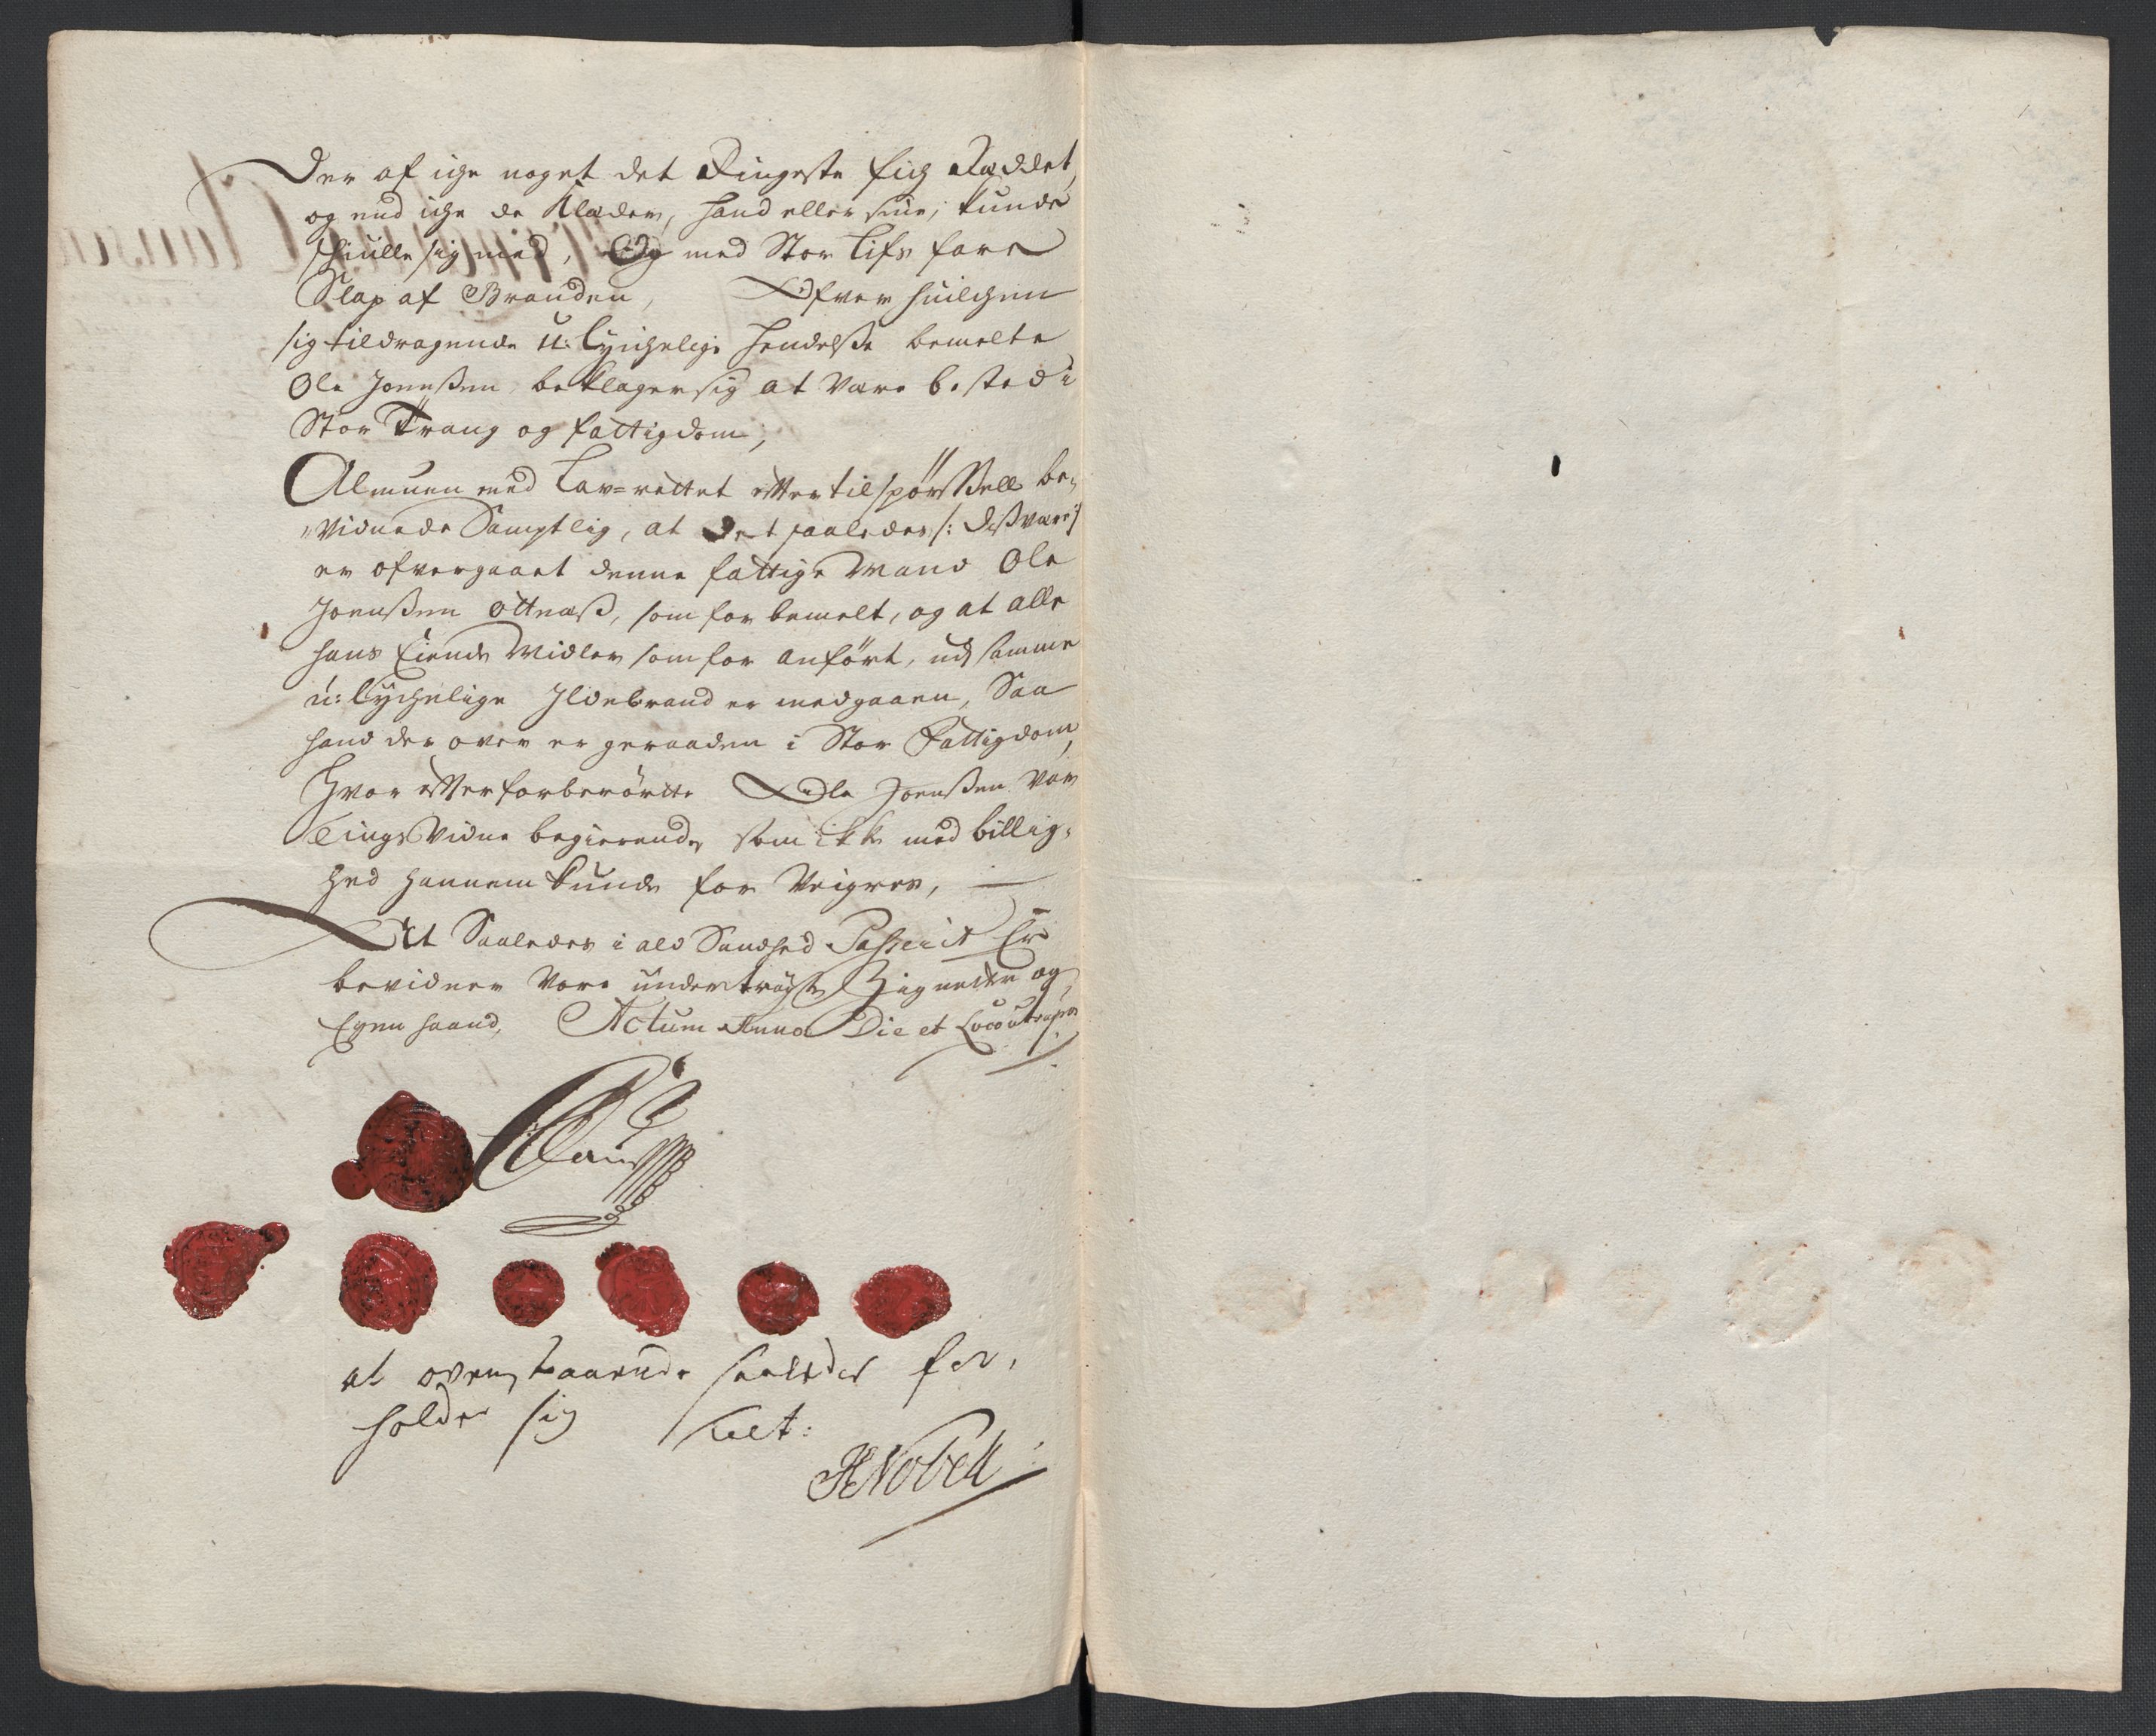 Der af iche noget det Ringeste fich Reddet,
og end iche de Klæder, hand eller sine, kunde
schiulle sig med, Og med Stor Lifs fare
Slap af Branden, Ofver huilchen
sig tildragende u:lychelige Hendelße bemelte
Ole Joenßen beklager sig at være bested i
Stor Trang og fattigdom,
Almuen med Lav-rettet effter tilspørßell be-
vidnede Samptlig, at det saaledes /: dißverre :/
er ofvergaaet denne fattige Mand Ole
Joenßen Ottnæß, som for bemelt, og at alle
hans Eiende Midler som for anført, udj samme
u:lychelige Ildebrand er medgaaen, Saa
hand der over er geraaden i Stor Fattigdom,
Hvor effter forberørtte Ole Joenßen var
Tings Vidne begierende, som ikke med billig-
hed hannem kunde for Veigres,
At Saaledes i ald Sandhed Passerit Er
bevidner Vore undertrøgte Zignetter og
Egen haand, Actum Anno Die et Loco ut supra
at ovenstaaende saaledes for-
holder sig test: